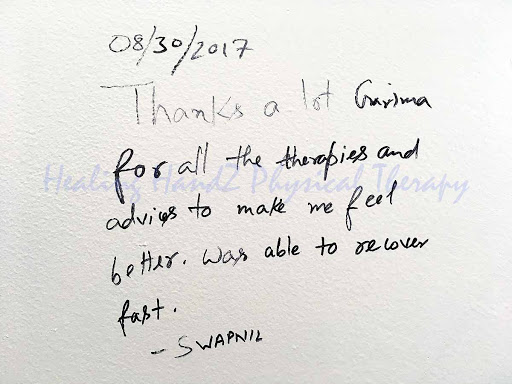 08/30/2017
Thanks a lot Garima
for all the therapies and
Healing HandZ Physical Therapy
advies to make me feel
better. Was able to recover
fast.
- SWAPNIL